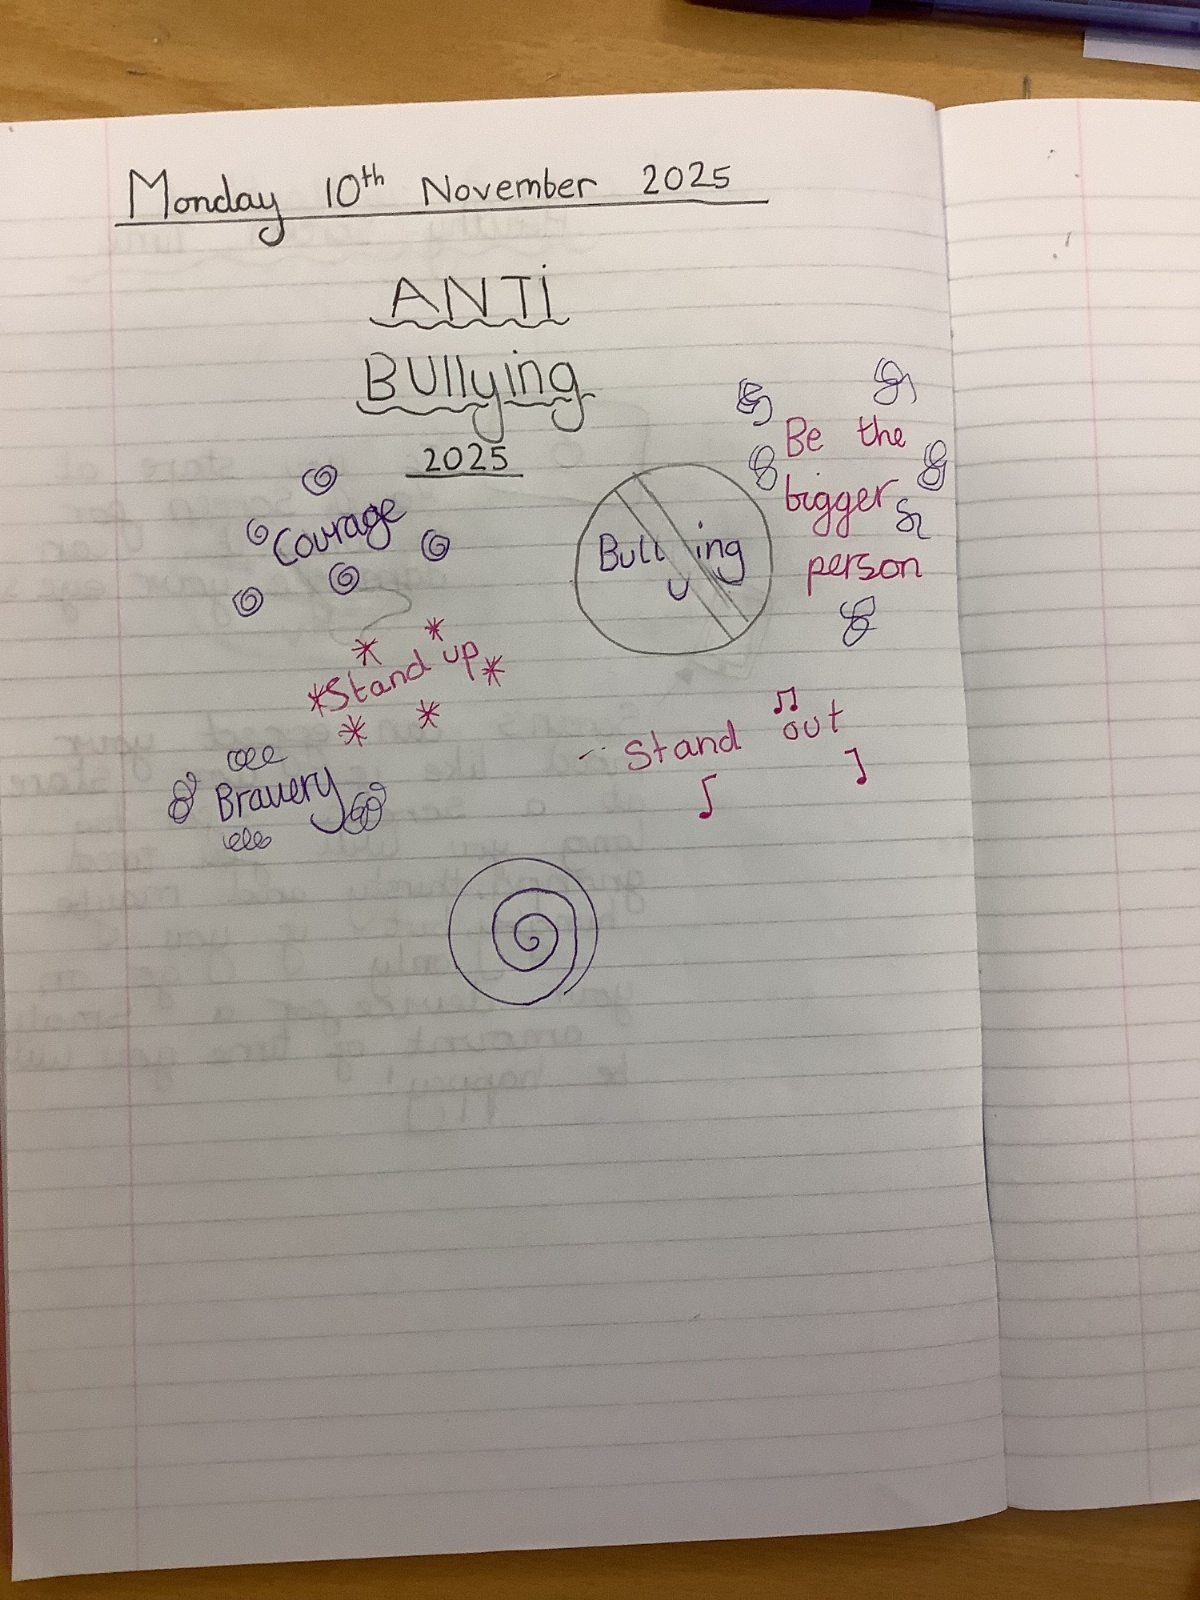 Monday 10th November 2025
ANTi
BUllying
2025
Courage
Be the
bigger
person
Bullying
Stand up
Stand out
Bravery